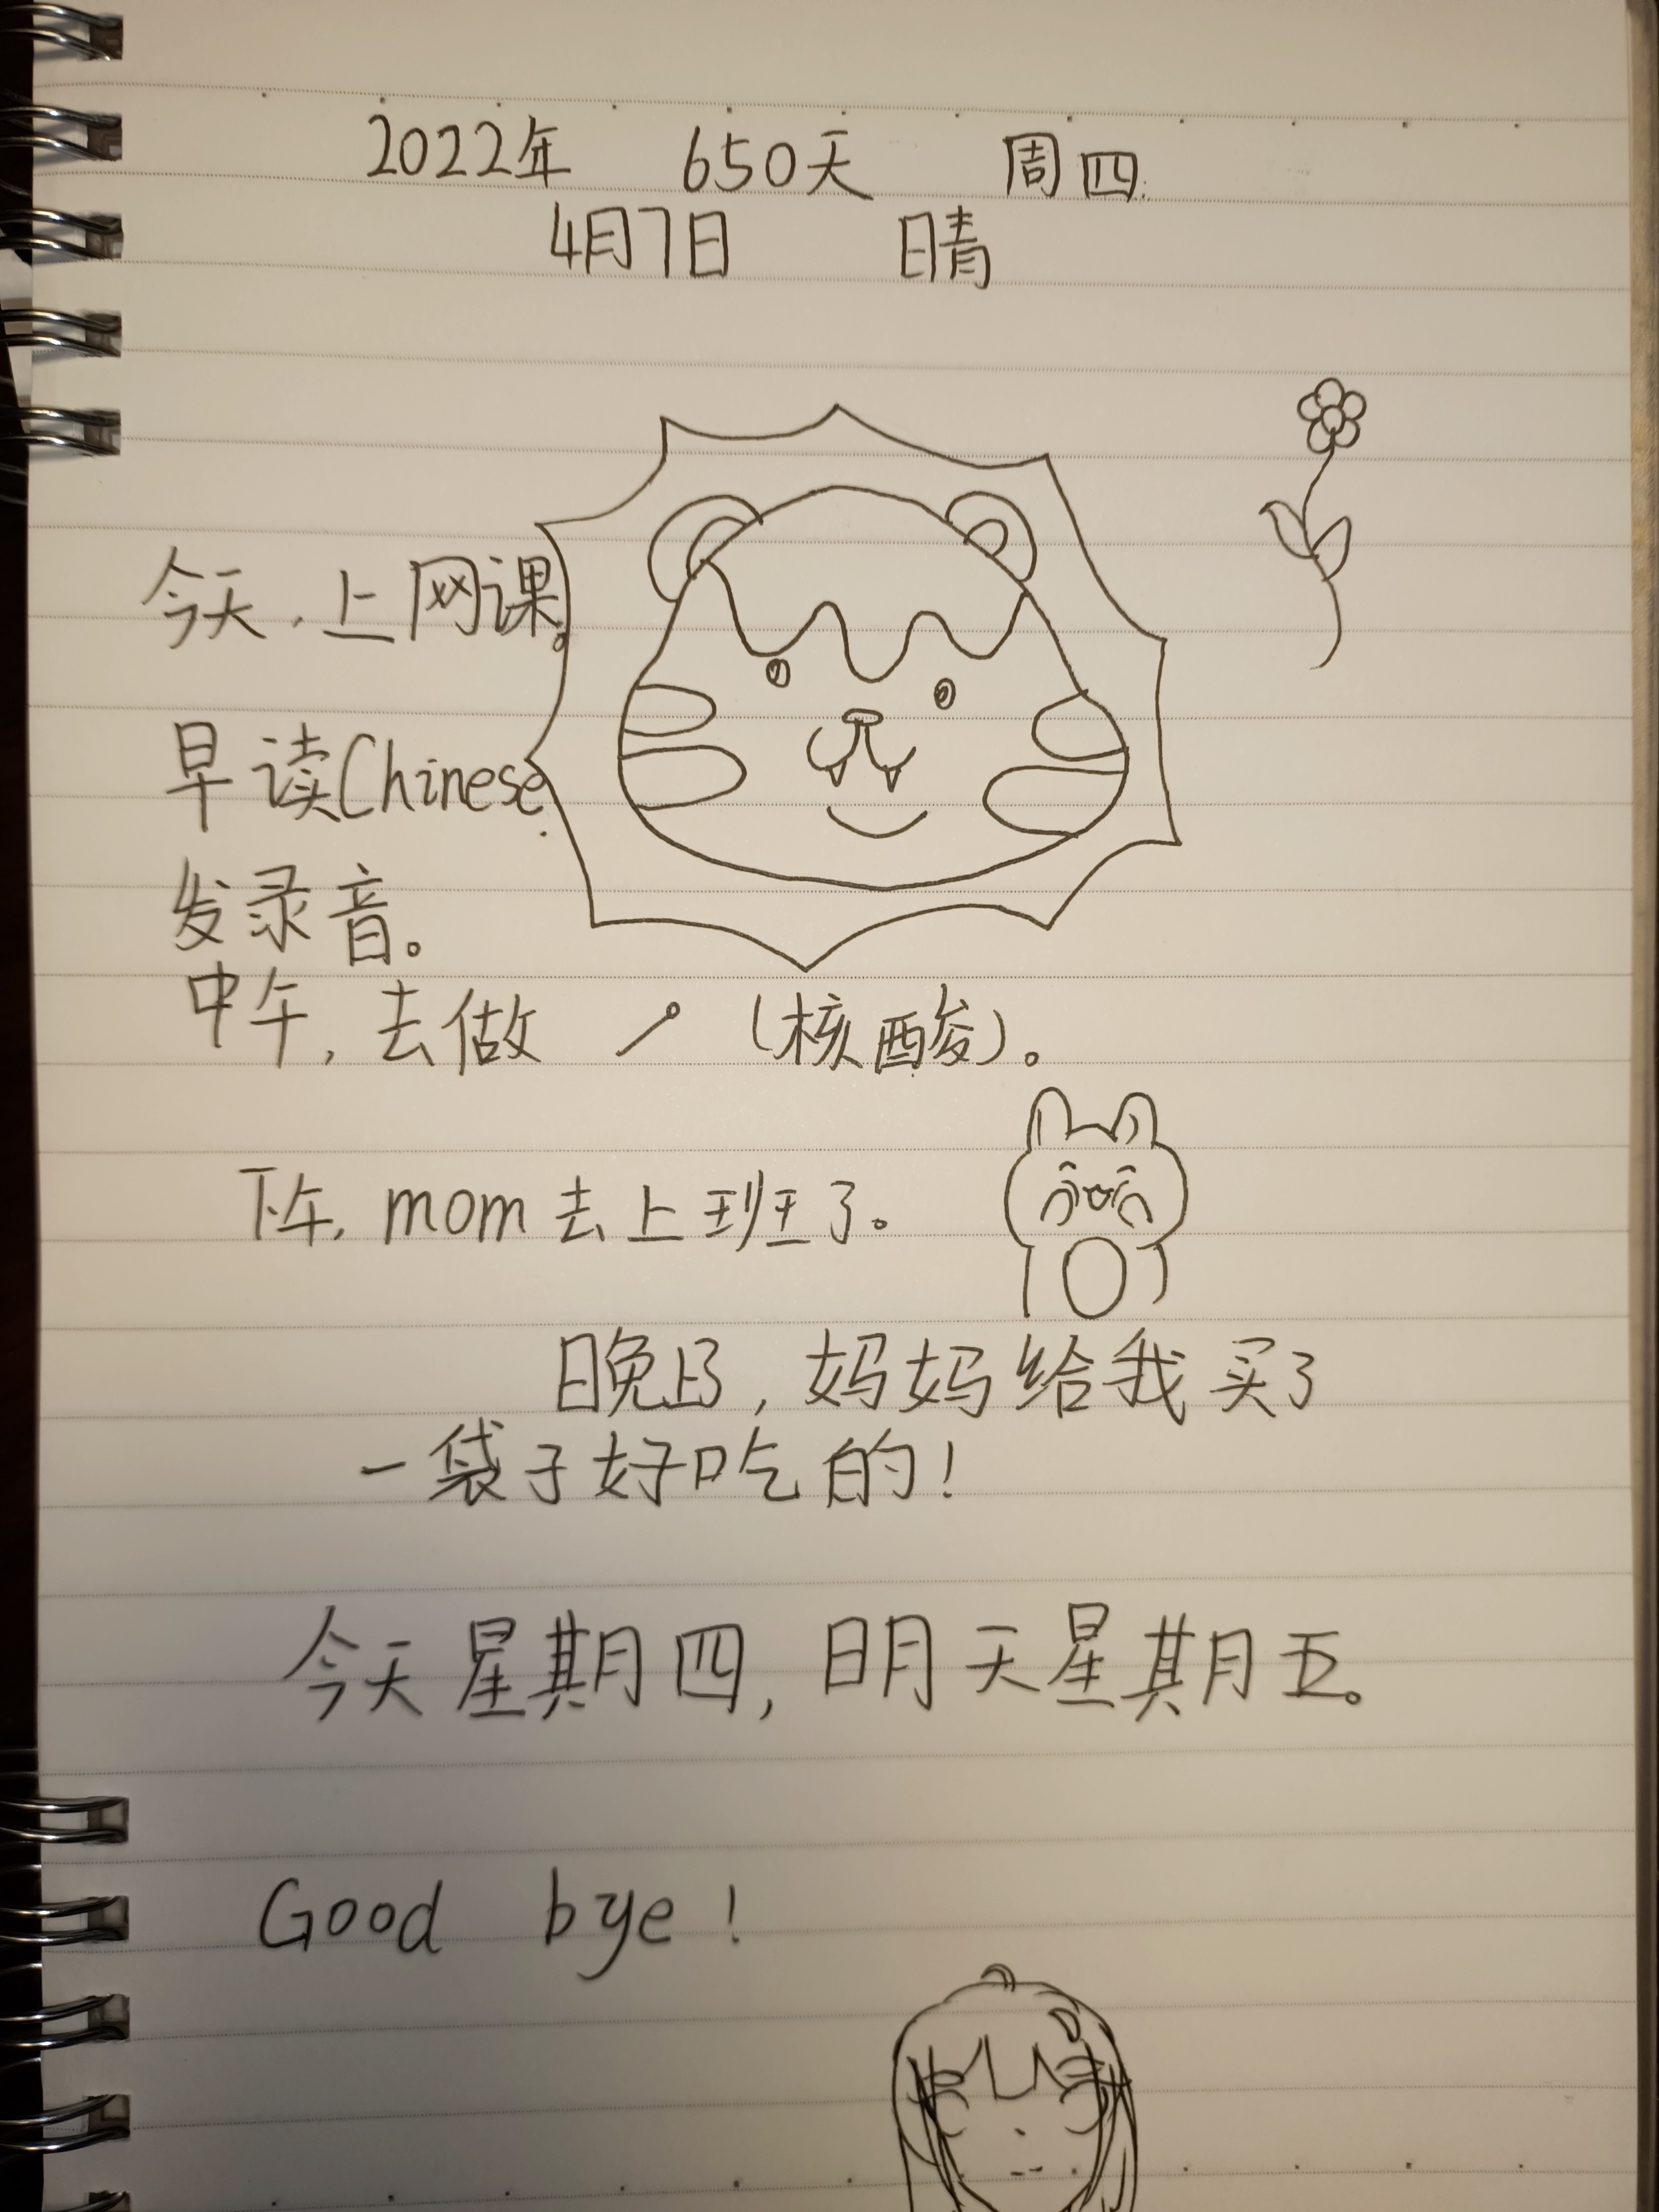 2022年 650天 周四.
4月7日 晴
今天,上网课。
早读Chinese.
发录音。
中午,去做 (核酸)。
下午,mom去上班了。
晚上了,妈妈给我买了
一袋子好吃的!
今天星期四,明天星期五。
Good bye!